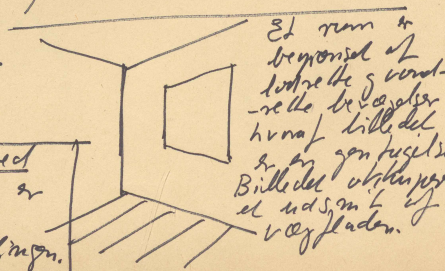 Et rum er
begrænset af
lodrette & vand-
-rette bevægelser
hvoraf billedet
er en gentagelse
Billedet
et udsnit af
vægfladen.
ed
er
lingen.